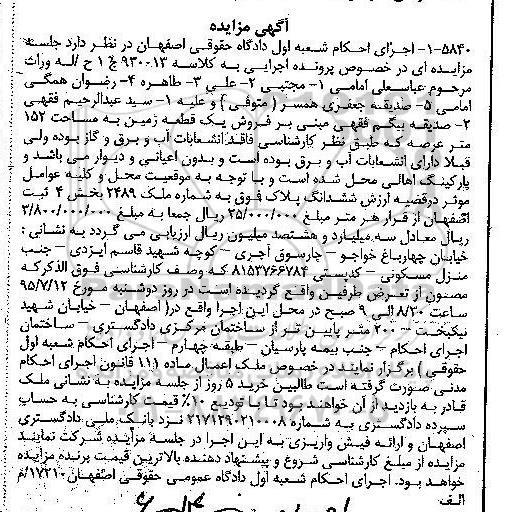 آگهی مزایده
۱-۵۸۴۰- اجرای احکام شعبه اول دادگاه حقوقی اصفهان در نظر دارد جلسه
مزایده ای در خصوص پرونده اجرایی به کلاسه ۹۳۰۰۱۳ ج ۱ ح له وراث
مرحوم عباسعلی امامی ۱- مجتبی ۲- علی ۳- طاهره ۴- رضوان همگی
امامی ۵- صدیقه جعفری همسر (متوفی) و علیه ۱- سید عبدالرحیم فقهی
۲- صدیقه بیگم فقهی مبنی بر فروش یک قطعه زمین به مساحت ۱۵۲
متر عرصه که طبق نظر کارشناسی فاقد انشعابات آب و برق و گاز بوده ولی
قبلا دارای انشعابات آب و برق بوده است و بدون اعیانی و دیوار می باشد و
پارکینگ اهالی محل شده است و با توجه به موقعیت محل و کلیه عوامل
موثر درقضیه ارزش ششدانگ پلاک فوق به شماره ملک ۲۴۸۹ بخش ۴ ثبت
اصفهان از قرار هر متر مبلغ ۲۵/۰۰۰/۰۰۰ ریال جمعا به مبلغ ۳/۸۰۰/۰۰۰/۰۰۰
ریال معادل سه میلیارد و هشتصد میلیون ریال ارزیابی می گردد به نشانی :
خیابان چهارباغ خواجو - چارسوق آجری - کوچه شهید قاسم ایزدی - جنب
منزل مسکونی - کدپستی ۸۱۵۳۷۶۶۷۸۴ که وصف کارشناسی فوق الذکر که
مصئون از تعرض طرفین واقع گردیده است در روز دوشنبه مورخ ۹۵/۷/۱۲
ساعت ۸/۳۰ الی ۹ صبح در محل این اجرا واقع در( اصفهان - خیابان شهید
نیکبخت - ۲۰۰ متر پایین تر از ساختمان مرکزی دادگستری - ساختمان
اجرای احکام - جنب بیمه پارسیان - طبقه چهارم - اجرای احکام شعبه اول
حقوقی ) برگزار نمایند در خصوص ملک اعمال ماده ۱۱۱ قانون اجرای احکام
مدنی صورت گرفته است طالبین خرید ۵ روز از جلسه مزایده به نشانی ملک
قادر به بازدید از آن خواهند بود تا با تودیع ۱۰٪ قیمت کارشناسی به حساب
سپرده دادگستری به شماره ۲۱۷۱۲۹۰۲۱۰۰۰۸ نزد بانک ملی دادگستری
اصفهان و ارائه فیش واریزی به این اجرا در جلسه مزایده شرکت نمایند
مزایده از مبلغ کارشناسی شروع و پیشنهاد دهنده بالاترین قیمت برنده مزایده
خواهد بود. اجرای احکام شعبه اول دادگاه عمومی حقوقی اصفهان ۱۷۲۱۰/م
الف